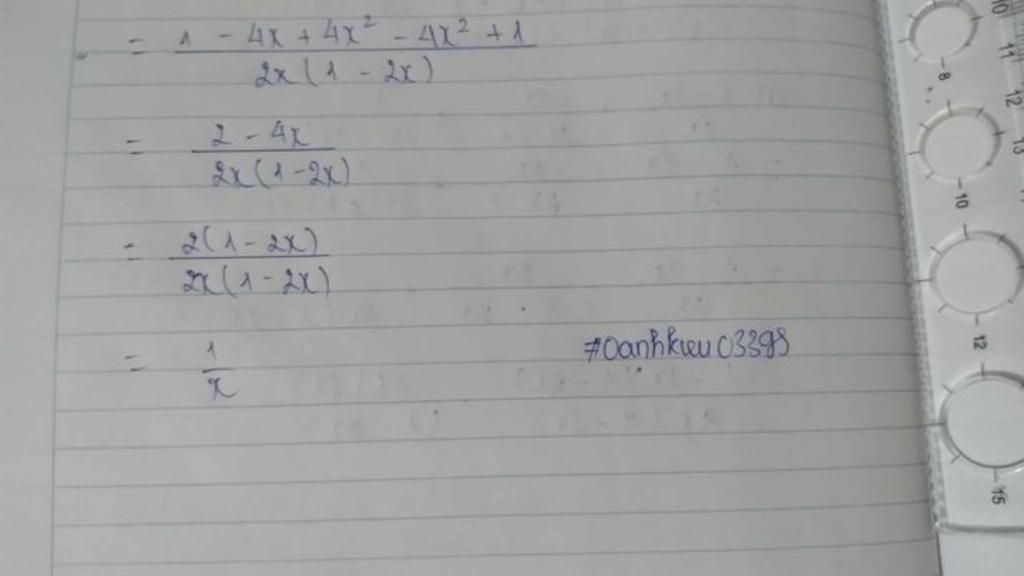 = 1 - 4x + 4x² - 4x² + 1
2x(1 - 2x)
= 2 - 4x
2x(1-2x)
= 2(1-2x)
2x(1-2x)
= 1
x
#oanhkieu03398
10
11
12
13
8
10
12
15